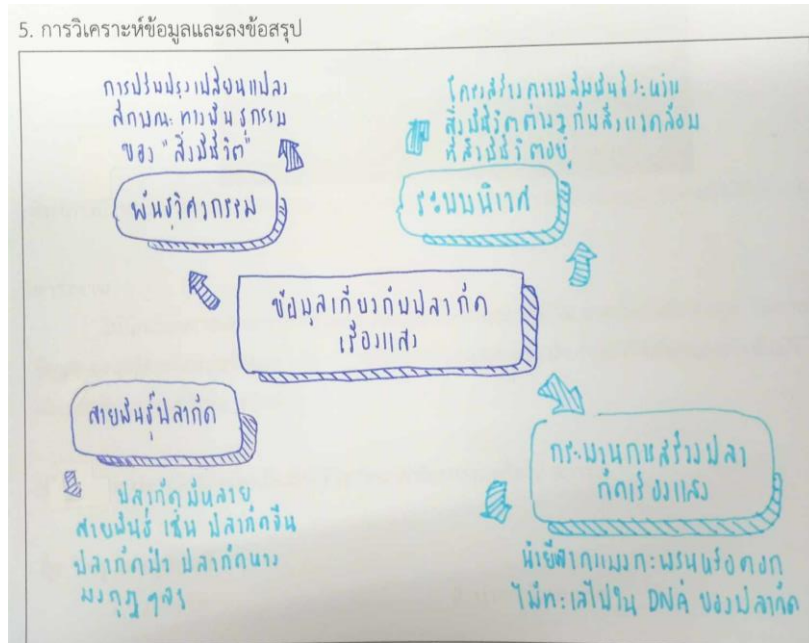 5. การวิเคราะห์ข้อมูลและลงข้อสรุป
การปรับปรุงเปลี่ยนแปลง
ลักษณะทางพันธุกรรม
ของ "สิ่งมีชีวิต"
พันธุวิศวกรรม
โครงสร้างความสัมพันธ์ระหว่าง
สิ่งมีชีวิตต่างๆ กับสิ่งแวดล้อม
ที่สิ่งมีชีวิตอยู่
ระบบนิเวศ
ข้อมูลเกี่ยวกับปลากัด
เรืองแสง
สายพันธุ์ปลากัด
ปลากัดมีหลาย
สายพันธุ์ เช่น ปลากัดจีน
ปลากัดป่า ปลากัดหาง
มงกุฎ ฯลฯ
กระบวนการสร้างปลา
กัดเรืองแสง
นำยีนจากแมงกะพรุนหรือดอก
ไม้ทะเลไปใน DNA ของปลากัด